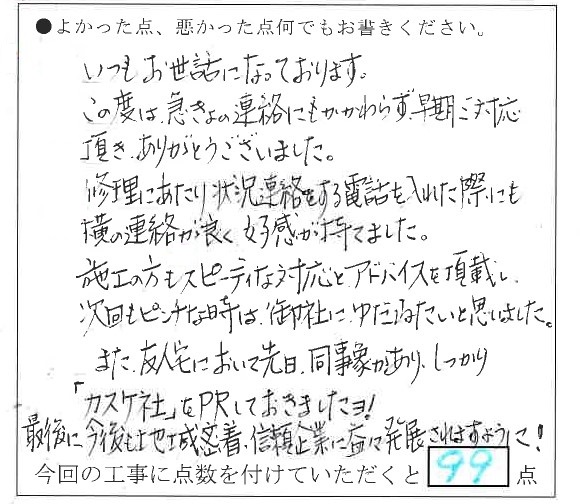 ●よかった点、悪かった点何でもお書きください。
いつもお世話になっております。
この度は、急きょの連絡にもかかわらず、早期ご対応
頂き、ありがとうございました。
修理にあたり状況連絡をする電話を入れた際にも
横の連絡が良く好感が持てました。
施工の方もスピーディな対応とアドバイスを頂戴し、
次回もピンチな時は、御社に、ゆだねたいと思いました。
また、友人宅において先日、同事象があり、しっかり
「カスケ社」をPRしておきましたヨ!
最後に今後も地域密着、信頼企業に益々発展されますように!
今回の工事に点数を付けていただくと 99 点